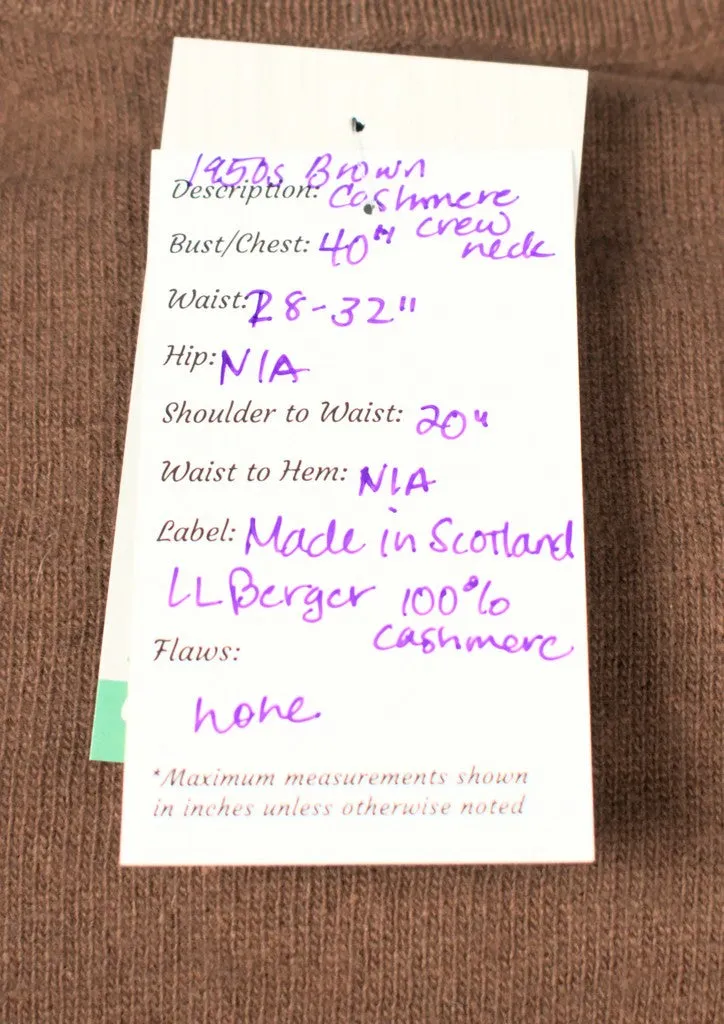 1950s Brown
Description: Cashmere
crew
Bust/Chest: 40" neck
Waist: 28-32"
Hip: N/A
Shoulder to Waist: 20"
Waist to Hem: N/A
Label: Made in Scotland
LL Berger 100%
cashmere
Flaws:
none
*Maximum measurements shown
in inches unless otherwise noted